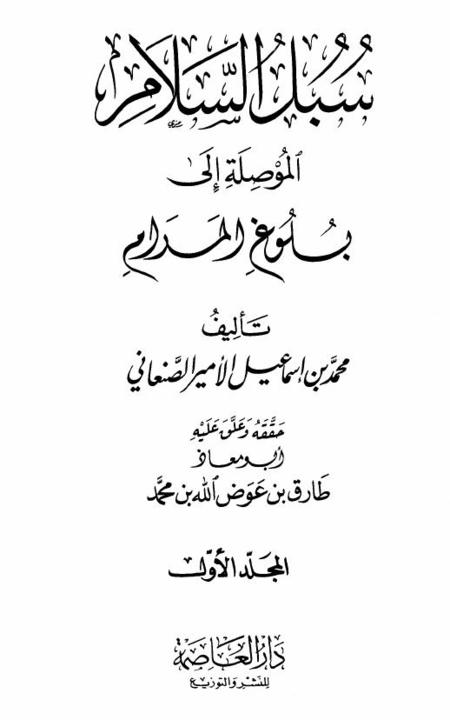 سُبُلُ السَّلَامِ
المُوْصِلَةِ إِلَىٰ
بُلُوغِ المَرَامِ
تَأْلِيفُ
محمَّد بن إسماعيل الأمير الصَّنعاني
حَقَّقَهُ وَعَلَّقَ عَلَيْهِ
أبو معاذ
طَارق بن عَوَض الله بن محمَّد
المجَلّد الأوّل
دَارُ العَاصِمَة
للنشر والتوزيع